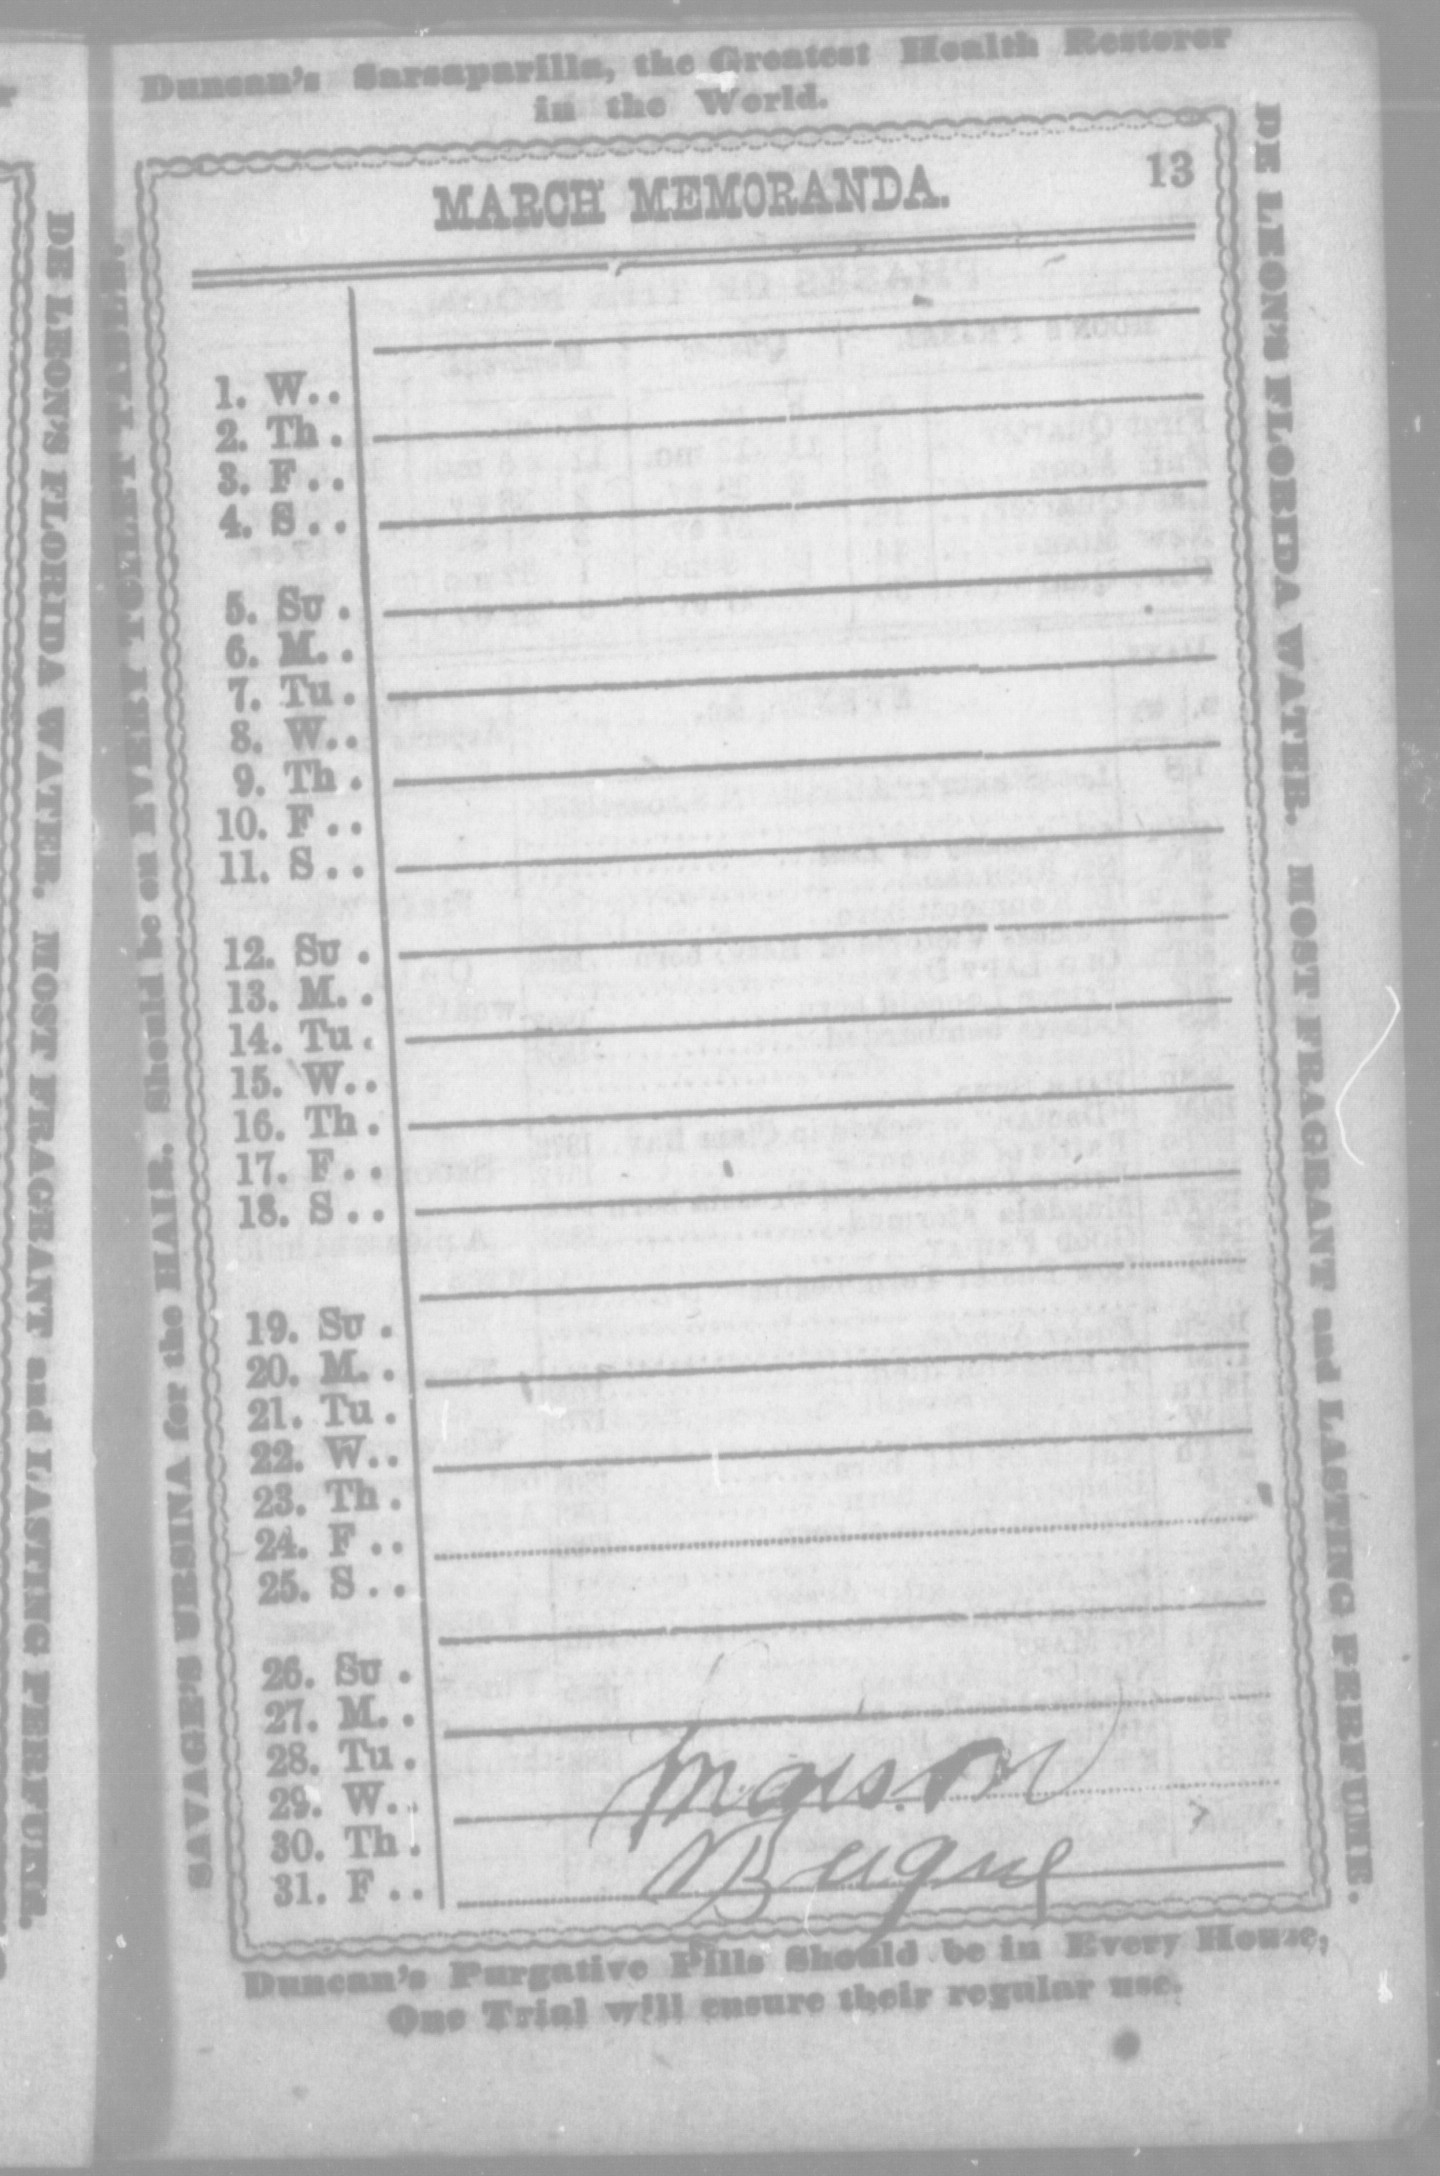 Duncan's Sarsaparilla, the Greatest Health Restorer
in the World.
MARCH MEMORANDA. 13
1. W..
2. Th.
3. F..
4. S..
5. Su.
6. M..
7. Tu.
8. W..
9. Th.
10. F..
11. S..
12. Su.
13. M..
14. Tu.
15. W..
16. Th.
17. F..
18. S..
19. Su.
20. M..
21. Tu.
22. W..
23. Th.
24. F..
25. S..
26. Su.
27. M..
28. Tu.
29. W..
30. Th.
31. F..
Duncan's Purgative Pills Should be in Every House,
One Trial will ensure their regular use.
SAVAGE'S URSINA for the HAIR. Should be on EVERY TOILET TABLE.
DE LEON'S FLORIDA WATER. MOST FRAGRANT and LASTING PERFUME.
DE LEON'S FLORIDA WATER. MOST FRAGRANT and LASTING PERFUME.